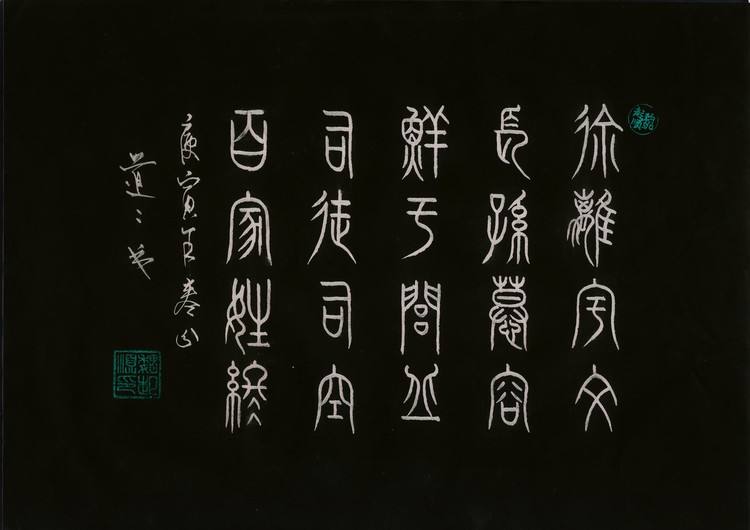 徐離宇文
長孫慕容
鮮于閭丘
司徒司空
百家姓終
庚寅年春